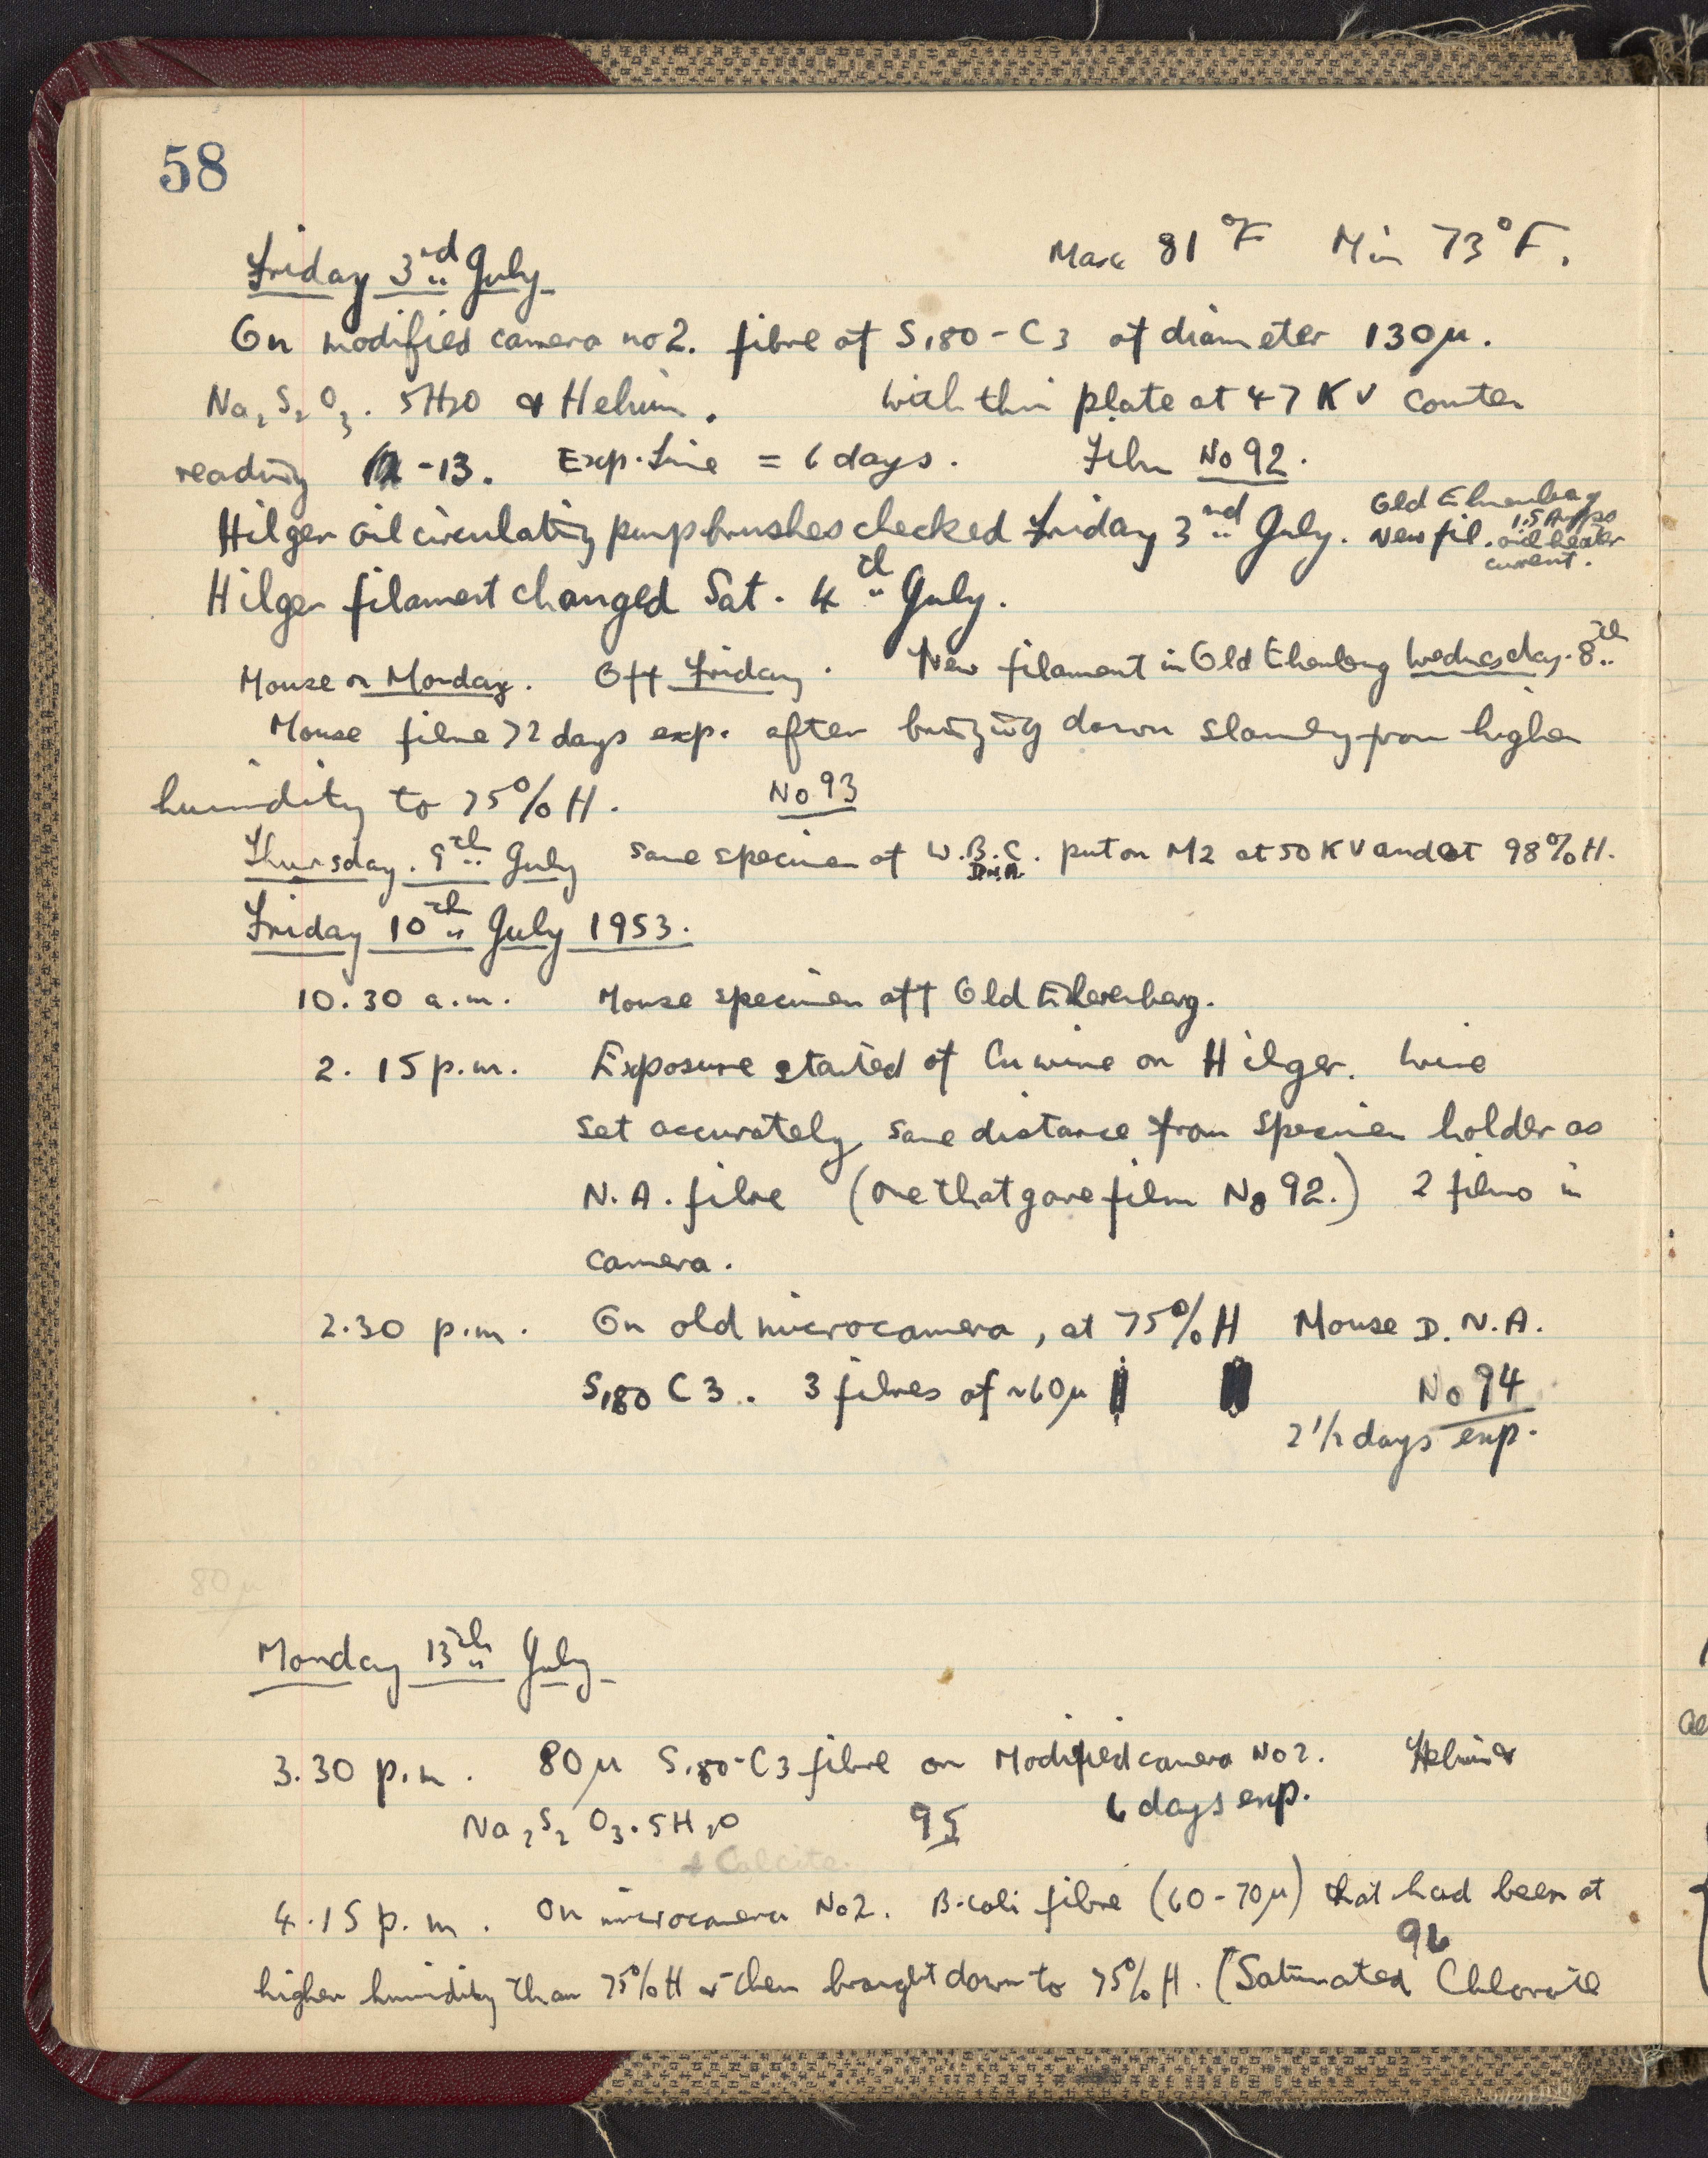 58
Friday 3rd July Max 81°F Min 73°F.
On modified camera no 2. fibre of S180-C3 of diameter 130μ.
Na2S2O3.5H2O & Helium. with thin plate at 47 KV counter
reading -13. Exp. time = 6 days. Film No 92.
Hilger oil circulating pump brushes checked Friday 3rd July. Old Ehrenberg
New fil. 1.5 Amps
oil heater
current.
Hilger filament changed Sat. 4th July.
Mouse on Monday. Off Friday. New filament in Old Ehrenberg Wednesday. 8th
Mouse fibre 72 days exp. after bringing down slowly from higher
humidity to 75% H. No 93
Thursday. 9th July same specimen of W.B.C. D.N.A. put on M2 at 50 KV and at 98% H.
Friday 10th July 1953.
10.30 a.m. Mouse specimen off Old Ehrenberg.
2.15 p.m. Exposure started of Cu wire on Hilger. Wire
set accurately same distance from specimen holder as
N.A. fibre (one that gave film No 92.) 2 films in
camera.
2.30 p.m. On old microcamera, at 75% H Mouse D.N.A.
S180 C3. 3 fibres of ~60μ No 94
2 1/2 days exp.
80μ
Monday 13th July
3.30 p.m. 80μ S180-C3 fibre on Modified camera No 2. Helium &
6 days exp.
Na2S2O3.5H2O 95
& Calcite.
4.15 p.m. On microcamera No 2. B.coli fibre (60-70μ) that had been at
96
higher humidity than 75% H & then brought down to 75% H. (Saturated Chlorate